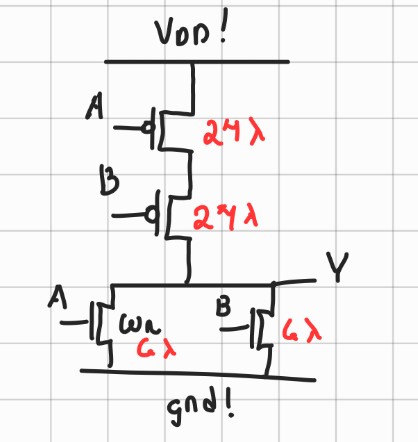 VDD!
A
24λ
B
24λ
Y
A
Wn
6λ
B
6λ
gnd!